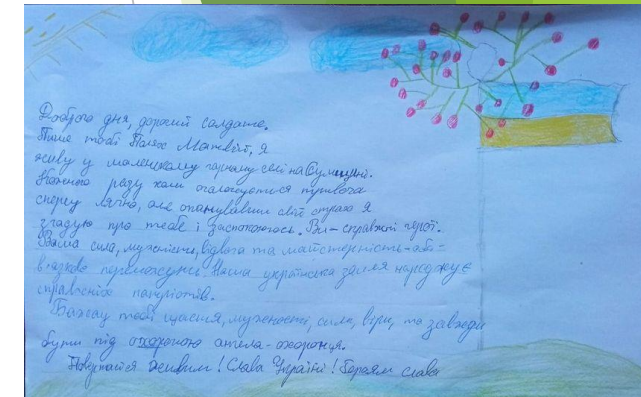 Доброго дня, дорогий солдате.
Пише тобі Полюс Матвій, я
живу у маленькому гарному селі на Сумщині.
Кожного разу коли оголошується тривога
спершу лячно, але опанувавши свій страх я
згадую про тебе і заспокоююсь. Ви - справжні герої.
Ваша сила, мужність, відвага та майстерність - обо-
в'язково переможуть. Наша українська земля народжує
справжніх патріотів.
Бажаю тобі щастя, мужності, сили, віри, та завжди
бути під охороною ангела-охоронця.
Повертайся живим! Слава Україні! Героям слава